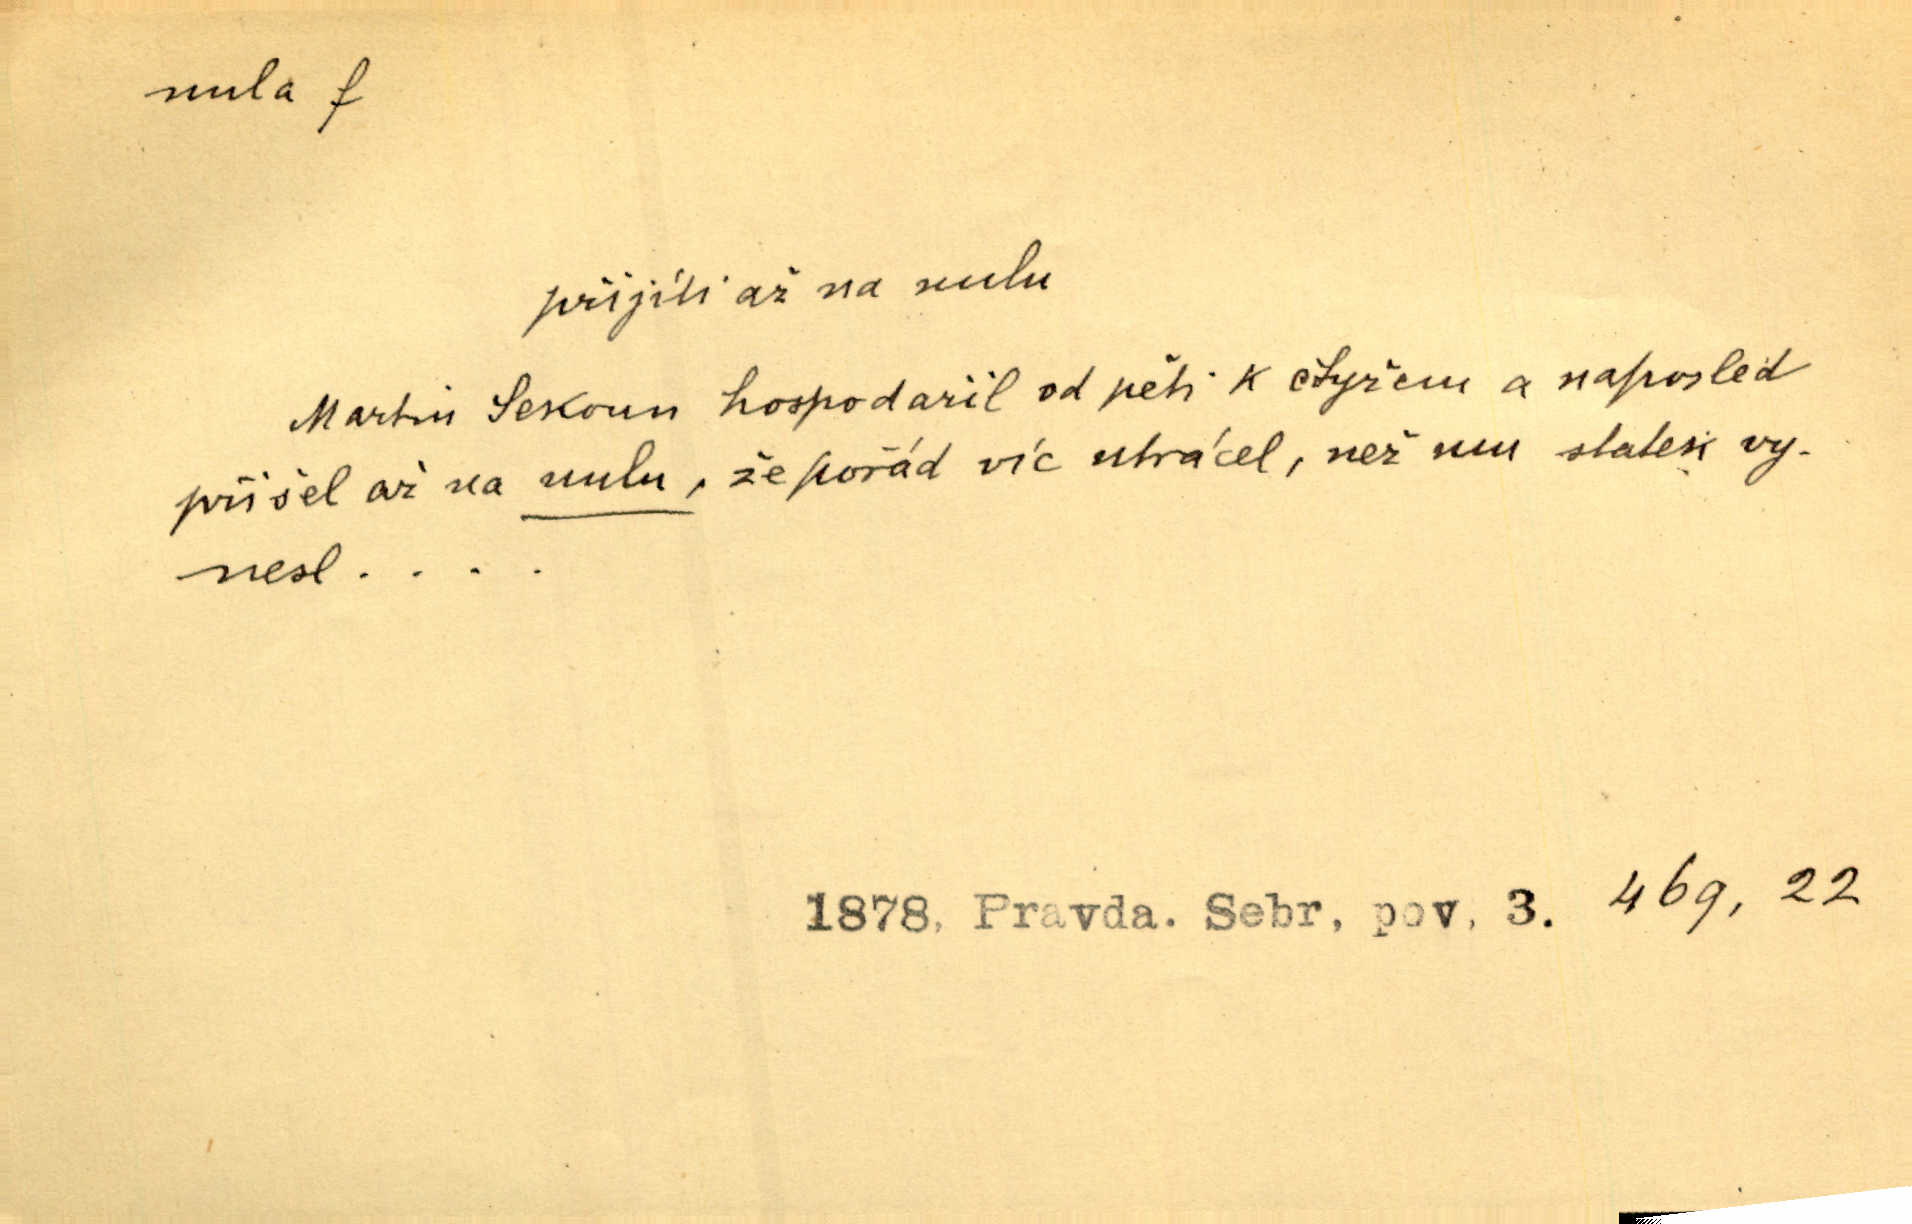 nula f
přijíti až na nulu
Martin Sekoun hospodařil od pěti k čtyřem a naposled
přišel až na nulu, že pořád víc utrácel, než mu statek vy-
nesl . . . .
1878, Pravda. Sebr, pov, 3. 469, 22